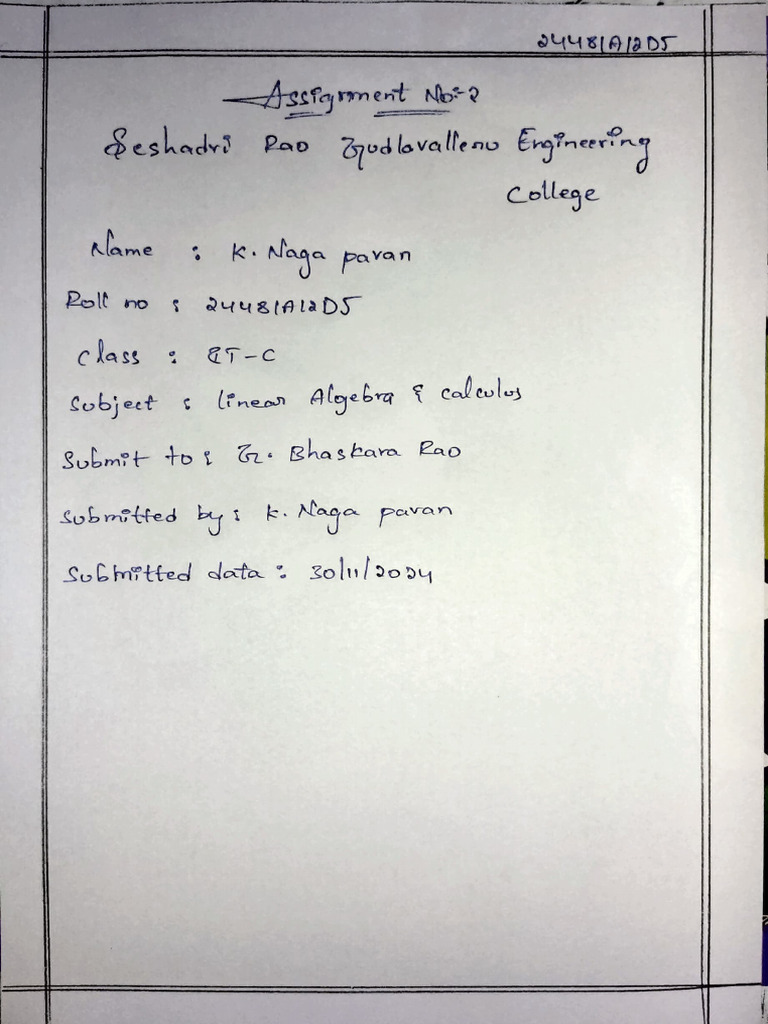 24481A12D5
Assignment No:-2
Seshadri Rao Gudlavalleru Engineering
College
Name : K. Naga pavan
Roll no : 24481A12D5
Class : IT-C
Subject : linear Algebra & calculus
Submit to : G. Bhaskara Rao
Submitted by : K. Naga pavan
Submitted data : 30/11/2024